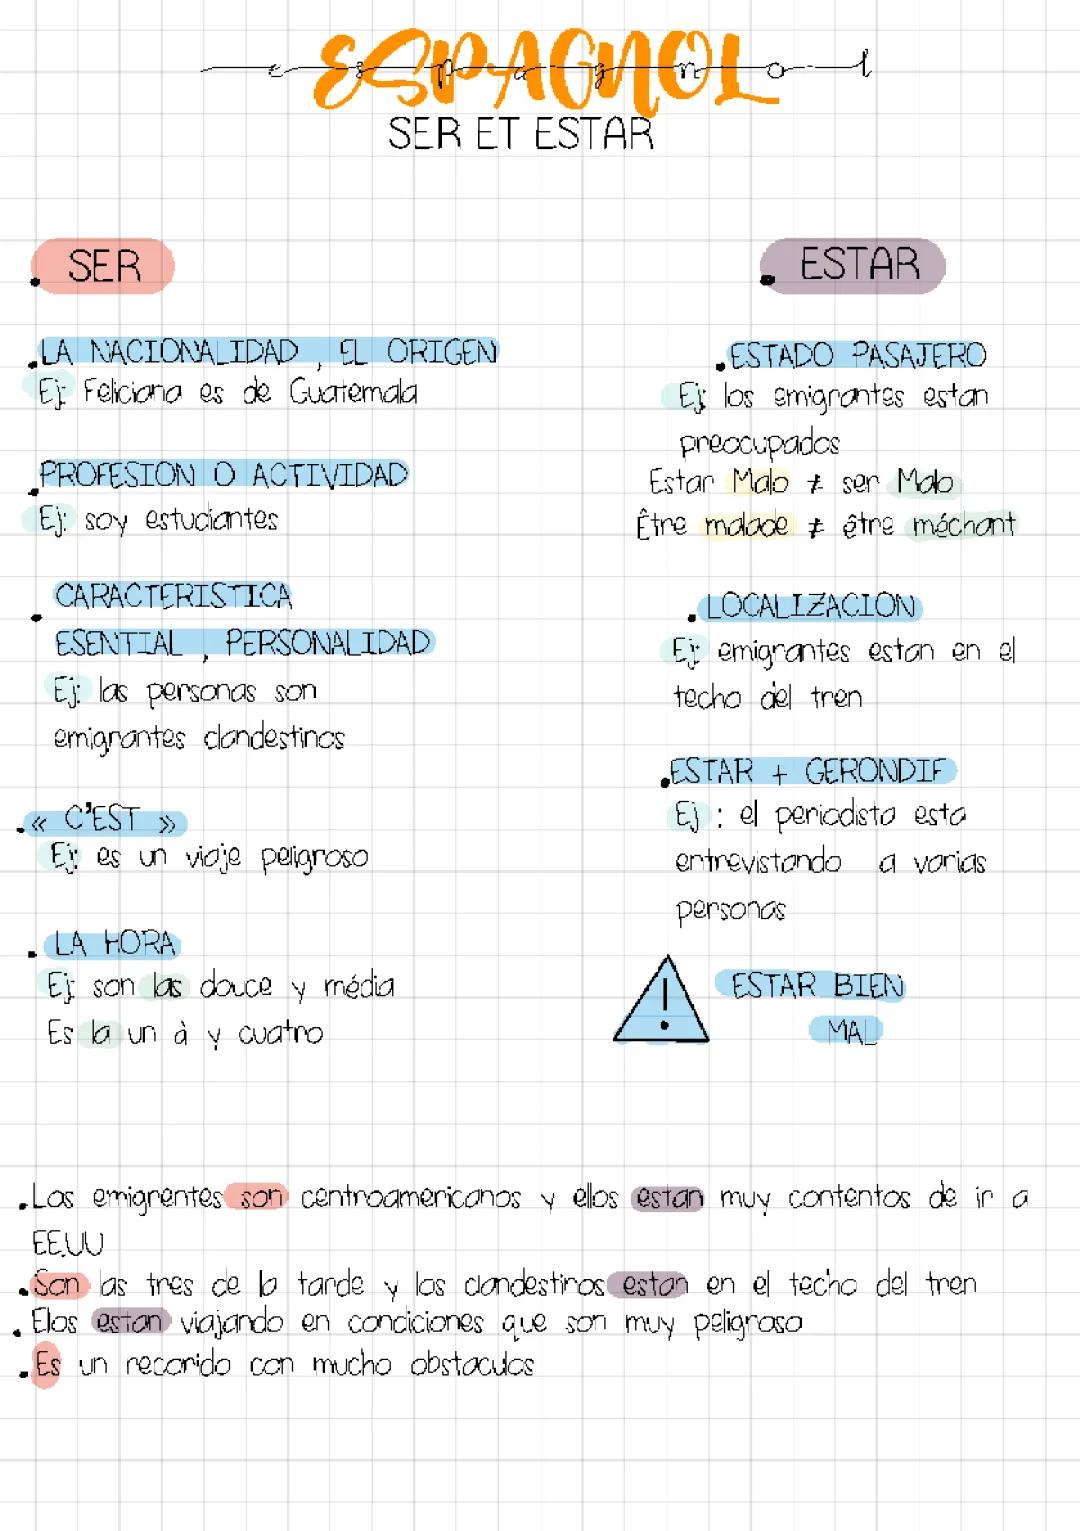 ESPAGNOL
espagnol
SER ET ESTAR
SER
LA NACIONALIDAD, EL ORIGEN
Ej: Feliciana es de Guatemala
PROFESION O ACTIVIDAD
Ej: soy estudiantes
CARACTERISTICA
ESENTIAL, PERSONALIDAD
Ej: las personas son
emigrantes clandestinos
« C'EST »
Ej: es un viaje peligroso
LA HORA
Ej: son las douce y média
Es la un à y cuatro
ESTAR
ESTADO PASAJERO
Ej: los emigrantes estan
preocupados
Estar Malo ≠ ser Malo
Être malade ≠ être méchant
LOCALIZACION
Ej: emigrantes estan en el
techo del tren
ESTAR + GERONDIF
Ej : el periodista esta
entrevistando a varias
personas
! ESTAR BIEN
MAL
Los emigrentes son centroamericanos y ellos estan muy contentos de ir a
EE.UU
Son las tres de la tarde y los clandestinos estan en el techo del tren
Ellos estan viajando en condiciones que son muy peligroso
Es un recorido con mucho obstaculos